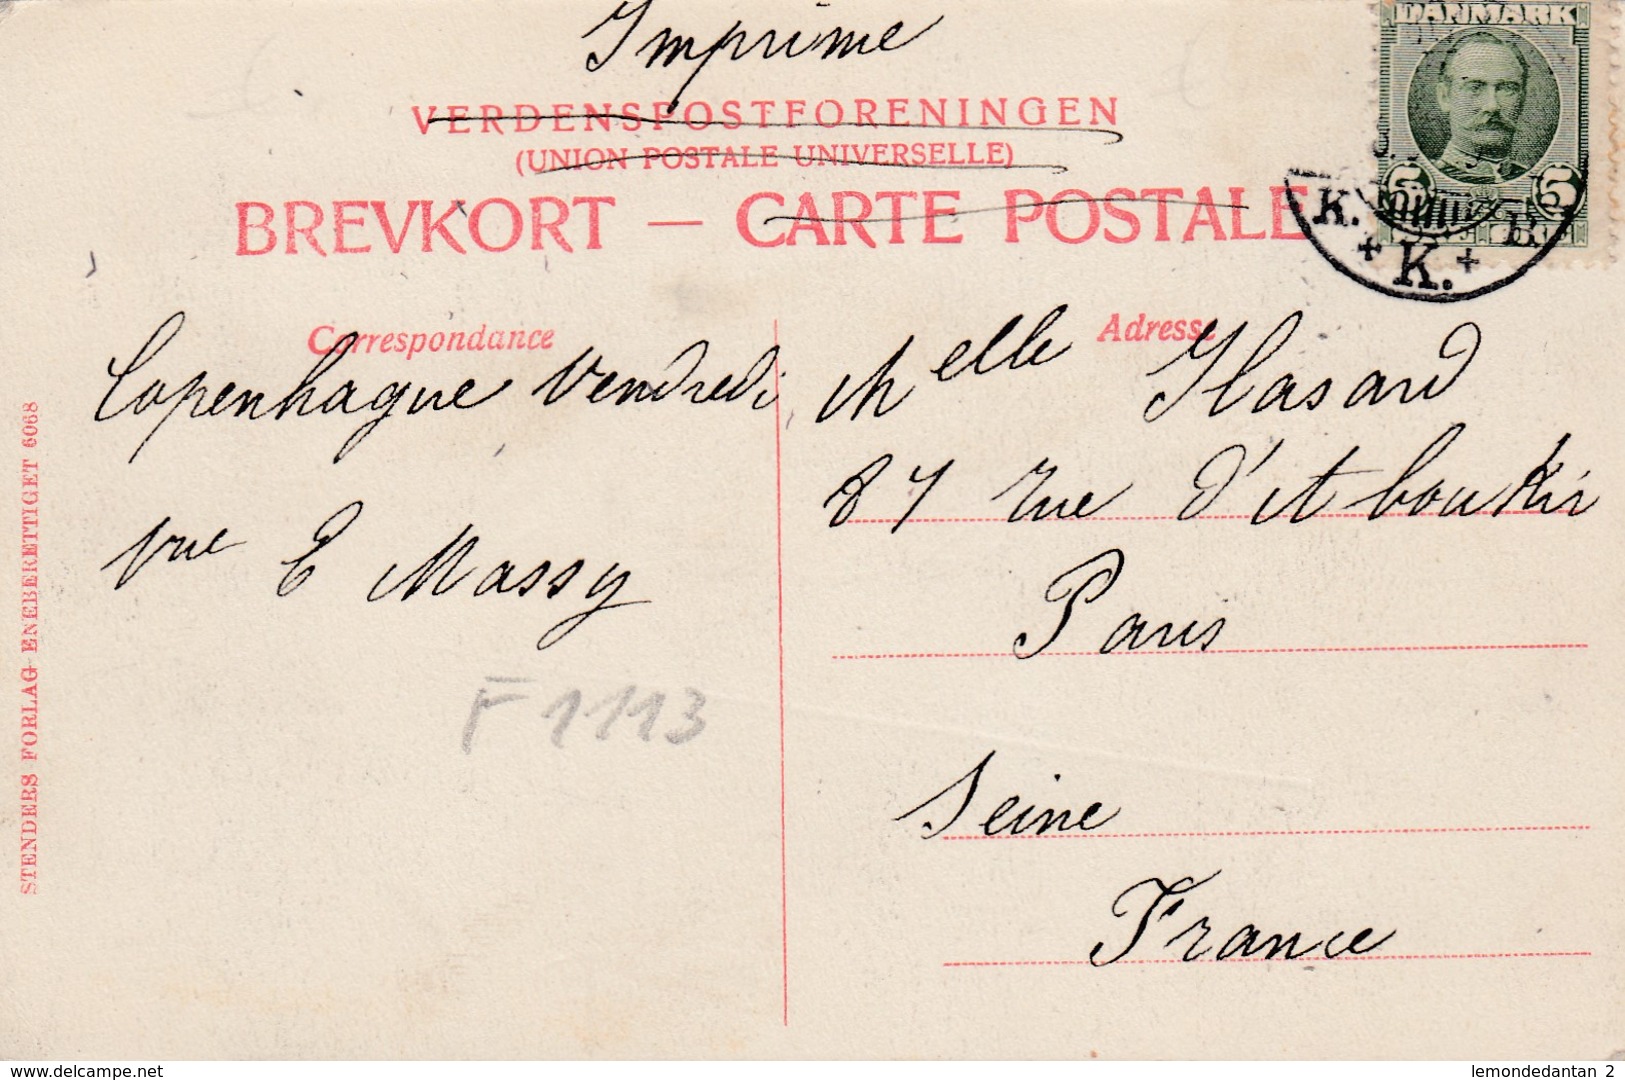 Imprime
DANMARK
VERDENSPOSTFORENINGEN
(UNION POSTALE UNIVERSELLE)
BREVKORT — CARTE POSTALE
5 5
K. K. B.
Correspondance
Copenhague Vendredi
vue E Massy
F1113
Adresse
Melle Hasard
87 rue d'At boukir
Paris
Seine
France
STENDERS FORLAG ENEBERETTIGET 6068
www.delcampe.net
lemondedantan 2